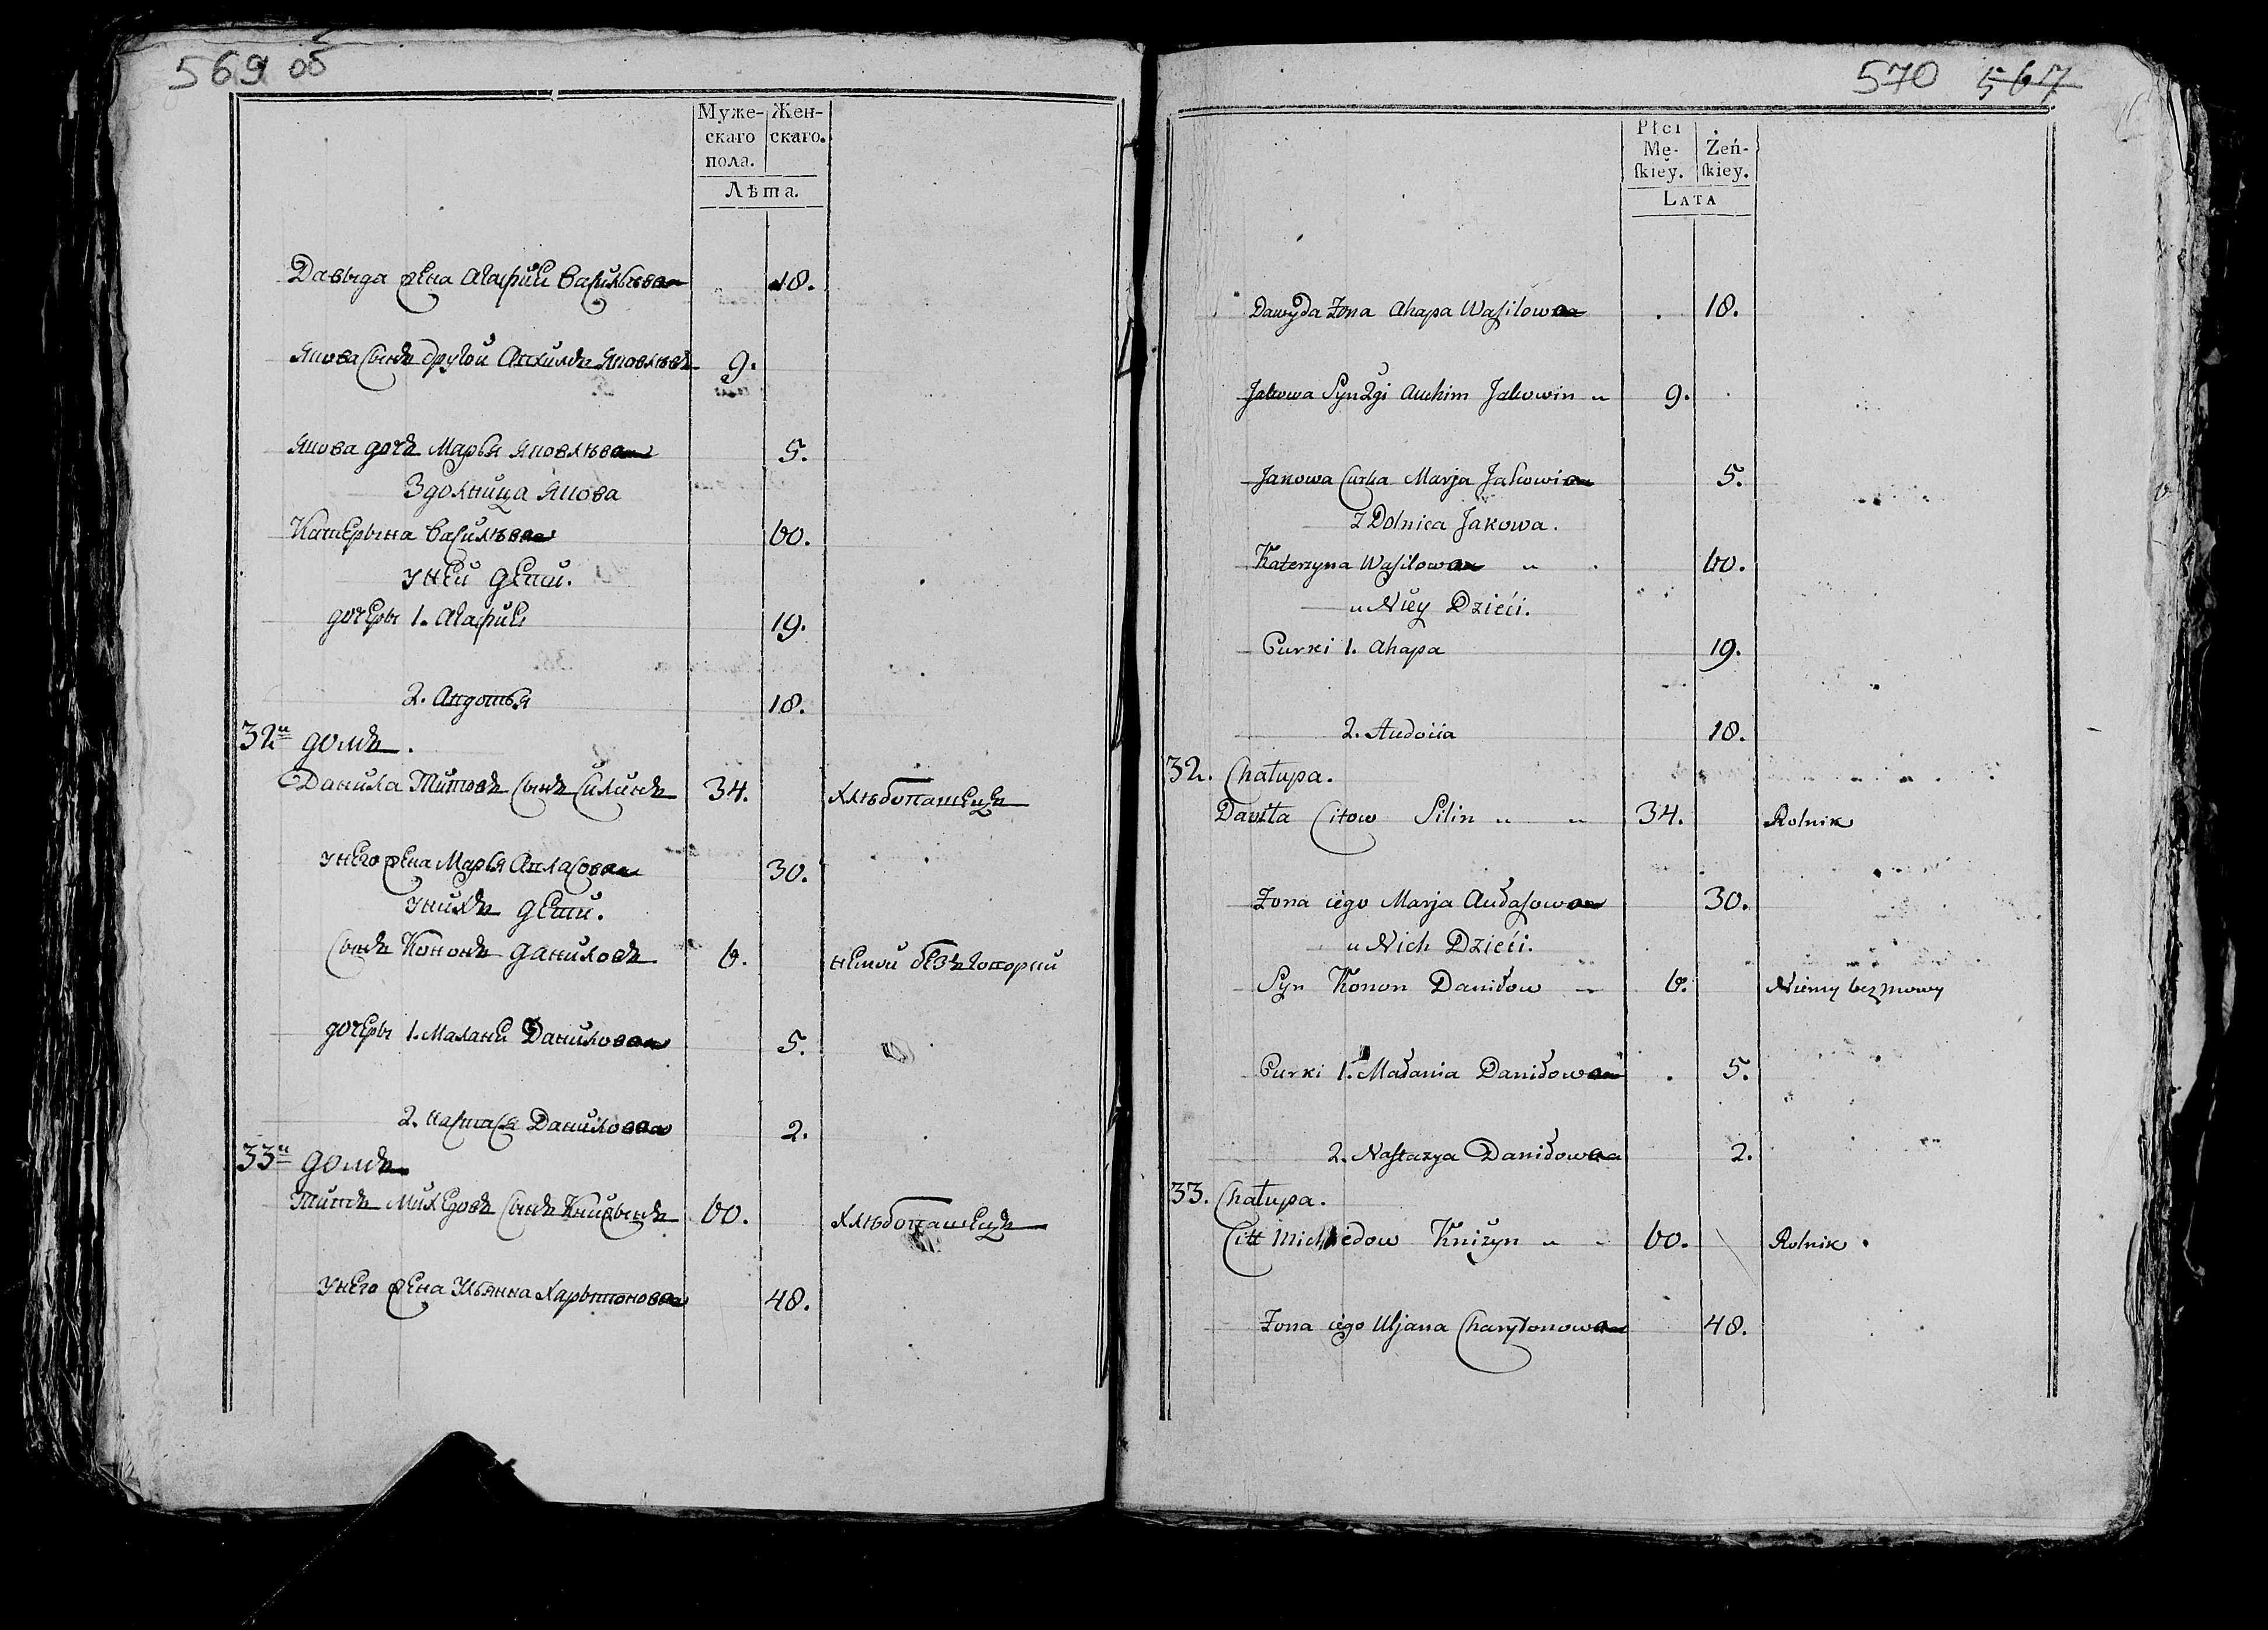 569 об
Муже- Жен-
скаго скаго.
пола.
Лѣта.
Давыда жена Агафия Васильева 18.
Якова сынъ другой Аихимъ Яковлѣвъ 9.
Якова дочь Марья Яковлѣва 5.
Здолница Якова
Катерына Васильѣва 60.
унеи дети.
дочеры 1. Агафия 19.
2. Авдотья 18.
32й домъ.
Данила Титовъ сынъ Силинъ 34. Хлѣбопашецъ
унего жена Марья Авласова 30.
унихъ дети.
сынъ Кононъ Даниловъ 6. немой безъ
дочеры 1. Малания Данилова 5.
2. Настася Данилова 2.
33й домъ
Титъ Михедовъ сынъ Книжынъ 60. Хлѣбопашецъ
унего жена Ульянна Харытонова 48.
570 567
Płci
Mę- Żeń-
ſkiey. ſkiey.
LATA
Dawyda Zona Ahapa Waſilowa 18.
Jakowa Syn 2gi Auchim Jakowin 9.
Jakowa Curka Marja Jakowi 5.
Z Dolnica Jakowa.
Katerzyna Waſilowa 60.
u Niey Dzieći.
Curki 1. Ahapa 19.
2. Audocia 18.
32. Chałupa.
Daniła Citow Silin 34. Rolnik
Zona iego Marja Audaſowa 30.
u Nich Dzieći.
Syn Konon Daniłow 6. Niemy bez mowy
Curki 1. Małania Daniłowa 5.
2. Naſtazya Daniłowa 2.
33. Chałupa.
Citt Michiedow Kniżyn 60. Rolnik
Zona iego Uljana Charytonowa 48.